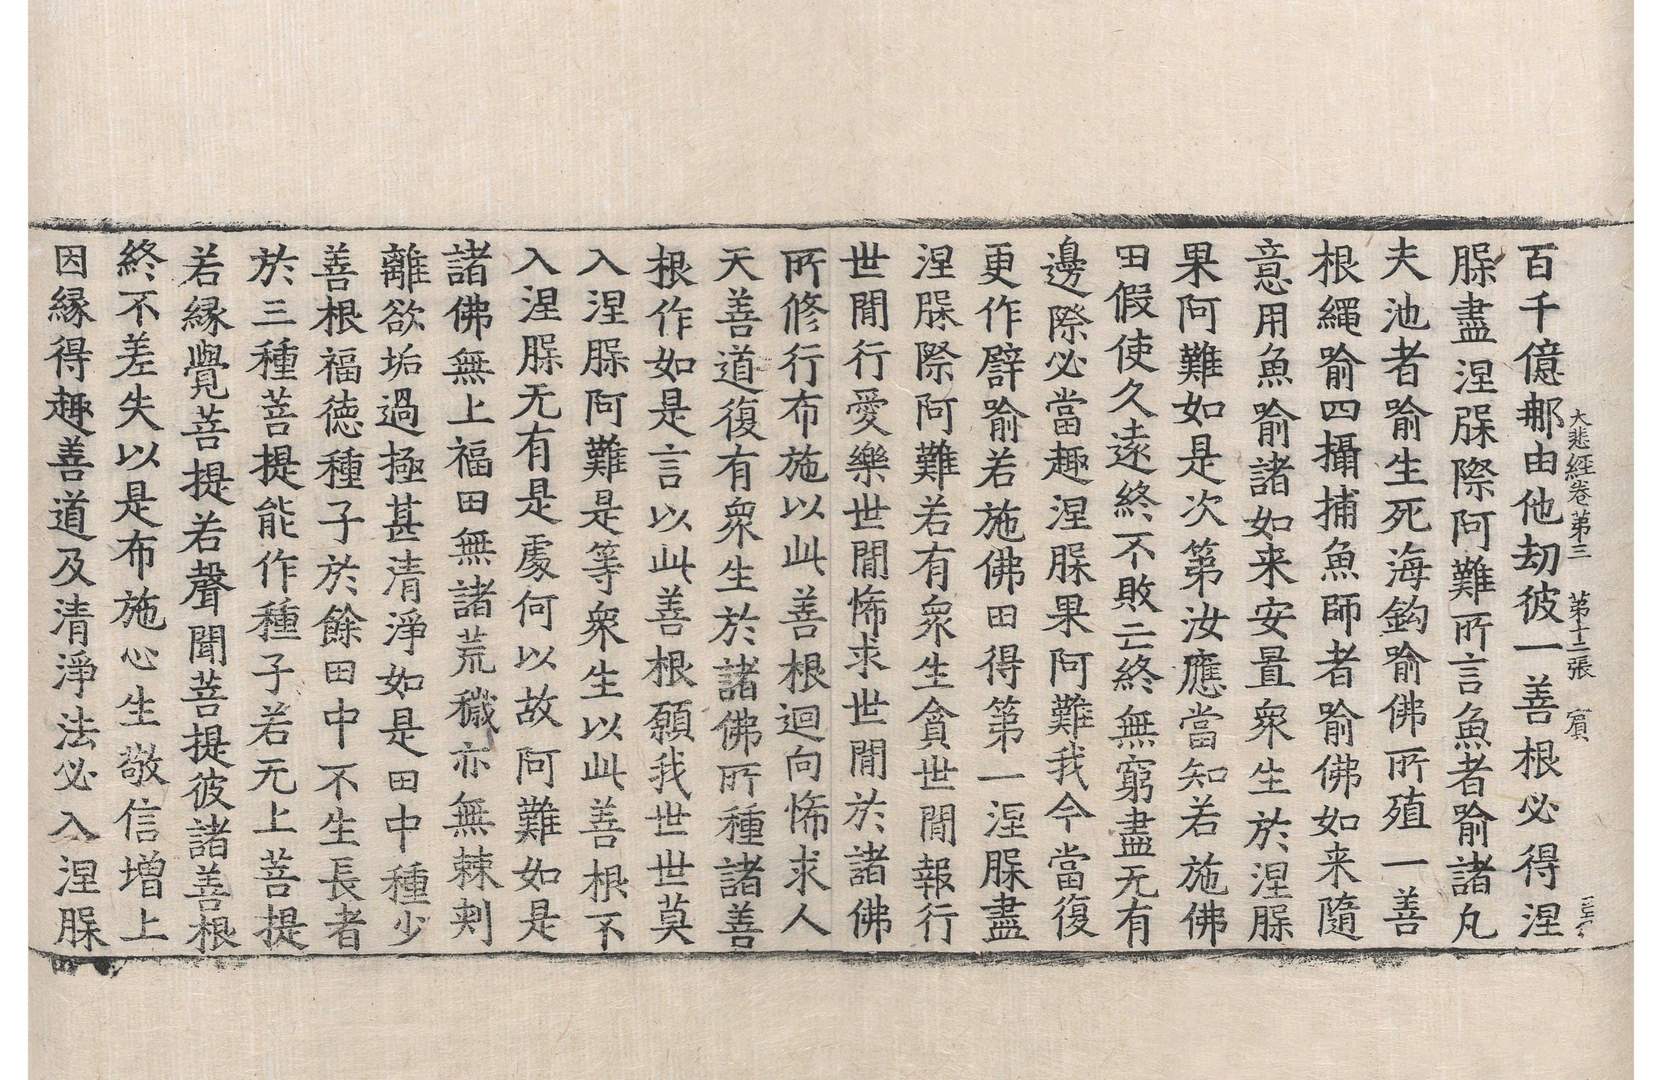 大悲經卷第三 第十二張 賔
百千億那由他劫彼一善根必得涅
槃盡涅槃際阿難所言魚者喻諸凡
夫池者喻生死海鈎喻佛所殖一善
根繩喻四攝捕魚師者喻佛如来隨
意用魚喻諸如来安置衆生於涅槃
果阿難如是次第汝應當知若施佛
田假使久遠終不敗亡終無窮盡无有
邊際必當趣涅槃果阿難我今當復
更作譬喻若施佛田得第一涅槃盡
涅槃際阿難若有衆生貪世間報行
世間行愛樂世間悕求世間於諸佛
所修行布施以此善根迴向悕求人
天善道復有衆生於諸佛所種諸善
根作如是言以此善根願我世世莫
入涅槃阿難是等衆生以此善根不
入涅槃无有是處何以故阿難如是
諸佛無上福田無諸荒穢亦無棘刺
離欲垢過極甚清淨如是田中種少
善根福德種子於餘田中不生長者
於三種菩提能作種子若无上菩提
若緣覺菩提若聲聞菩提彼諸善根
終不差失以是布施心生敬信增上
因緣得趣善道及清淨法必入涅槃